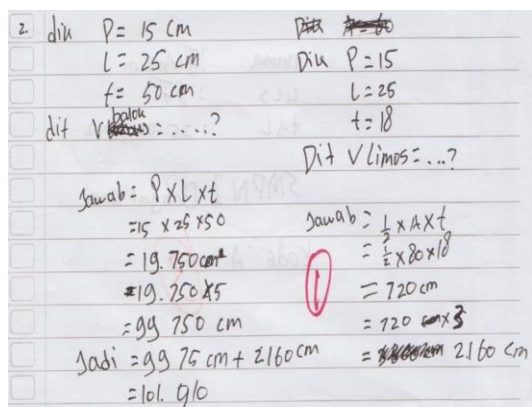 2. diu P = 15 cm
l = 25 cm
t = 50 cm
dit V balok = .....?
Jawab = P x L x t
= 15 x 25 x 50
= 19.750 cm²
= 19.750 x 5
= 99 750 cm
Jadi = 99 75 cm + 2160 cm
= 101. 910
Diu P = 15
L = 25
t = 18
Dit V limos = ...?
Jawab = 1/2 x A x t
= 1/2 x 80 x 18
= 720 cm
= 720 x 3
= 2160 cm
1